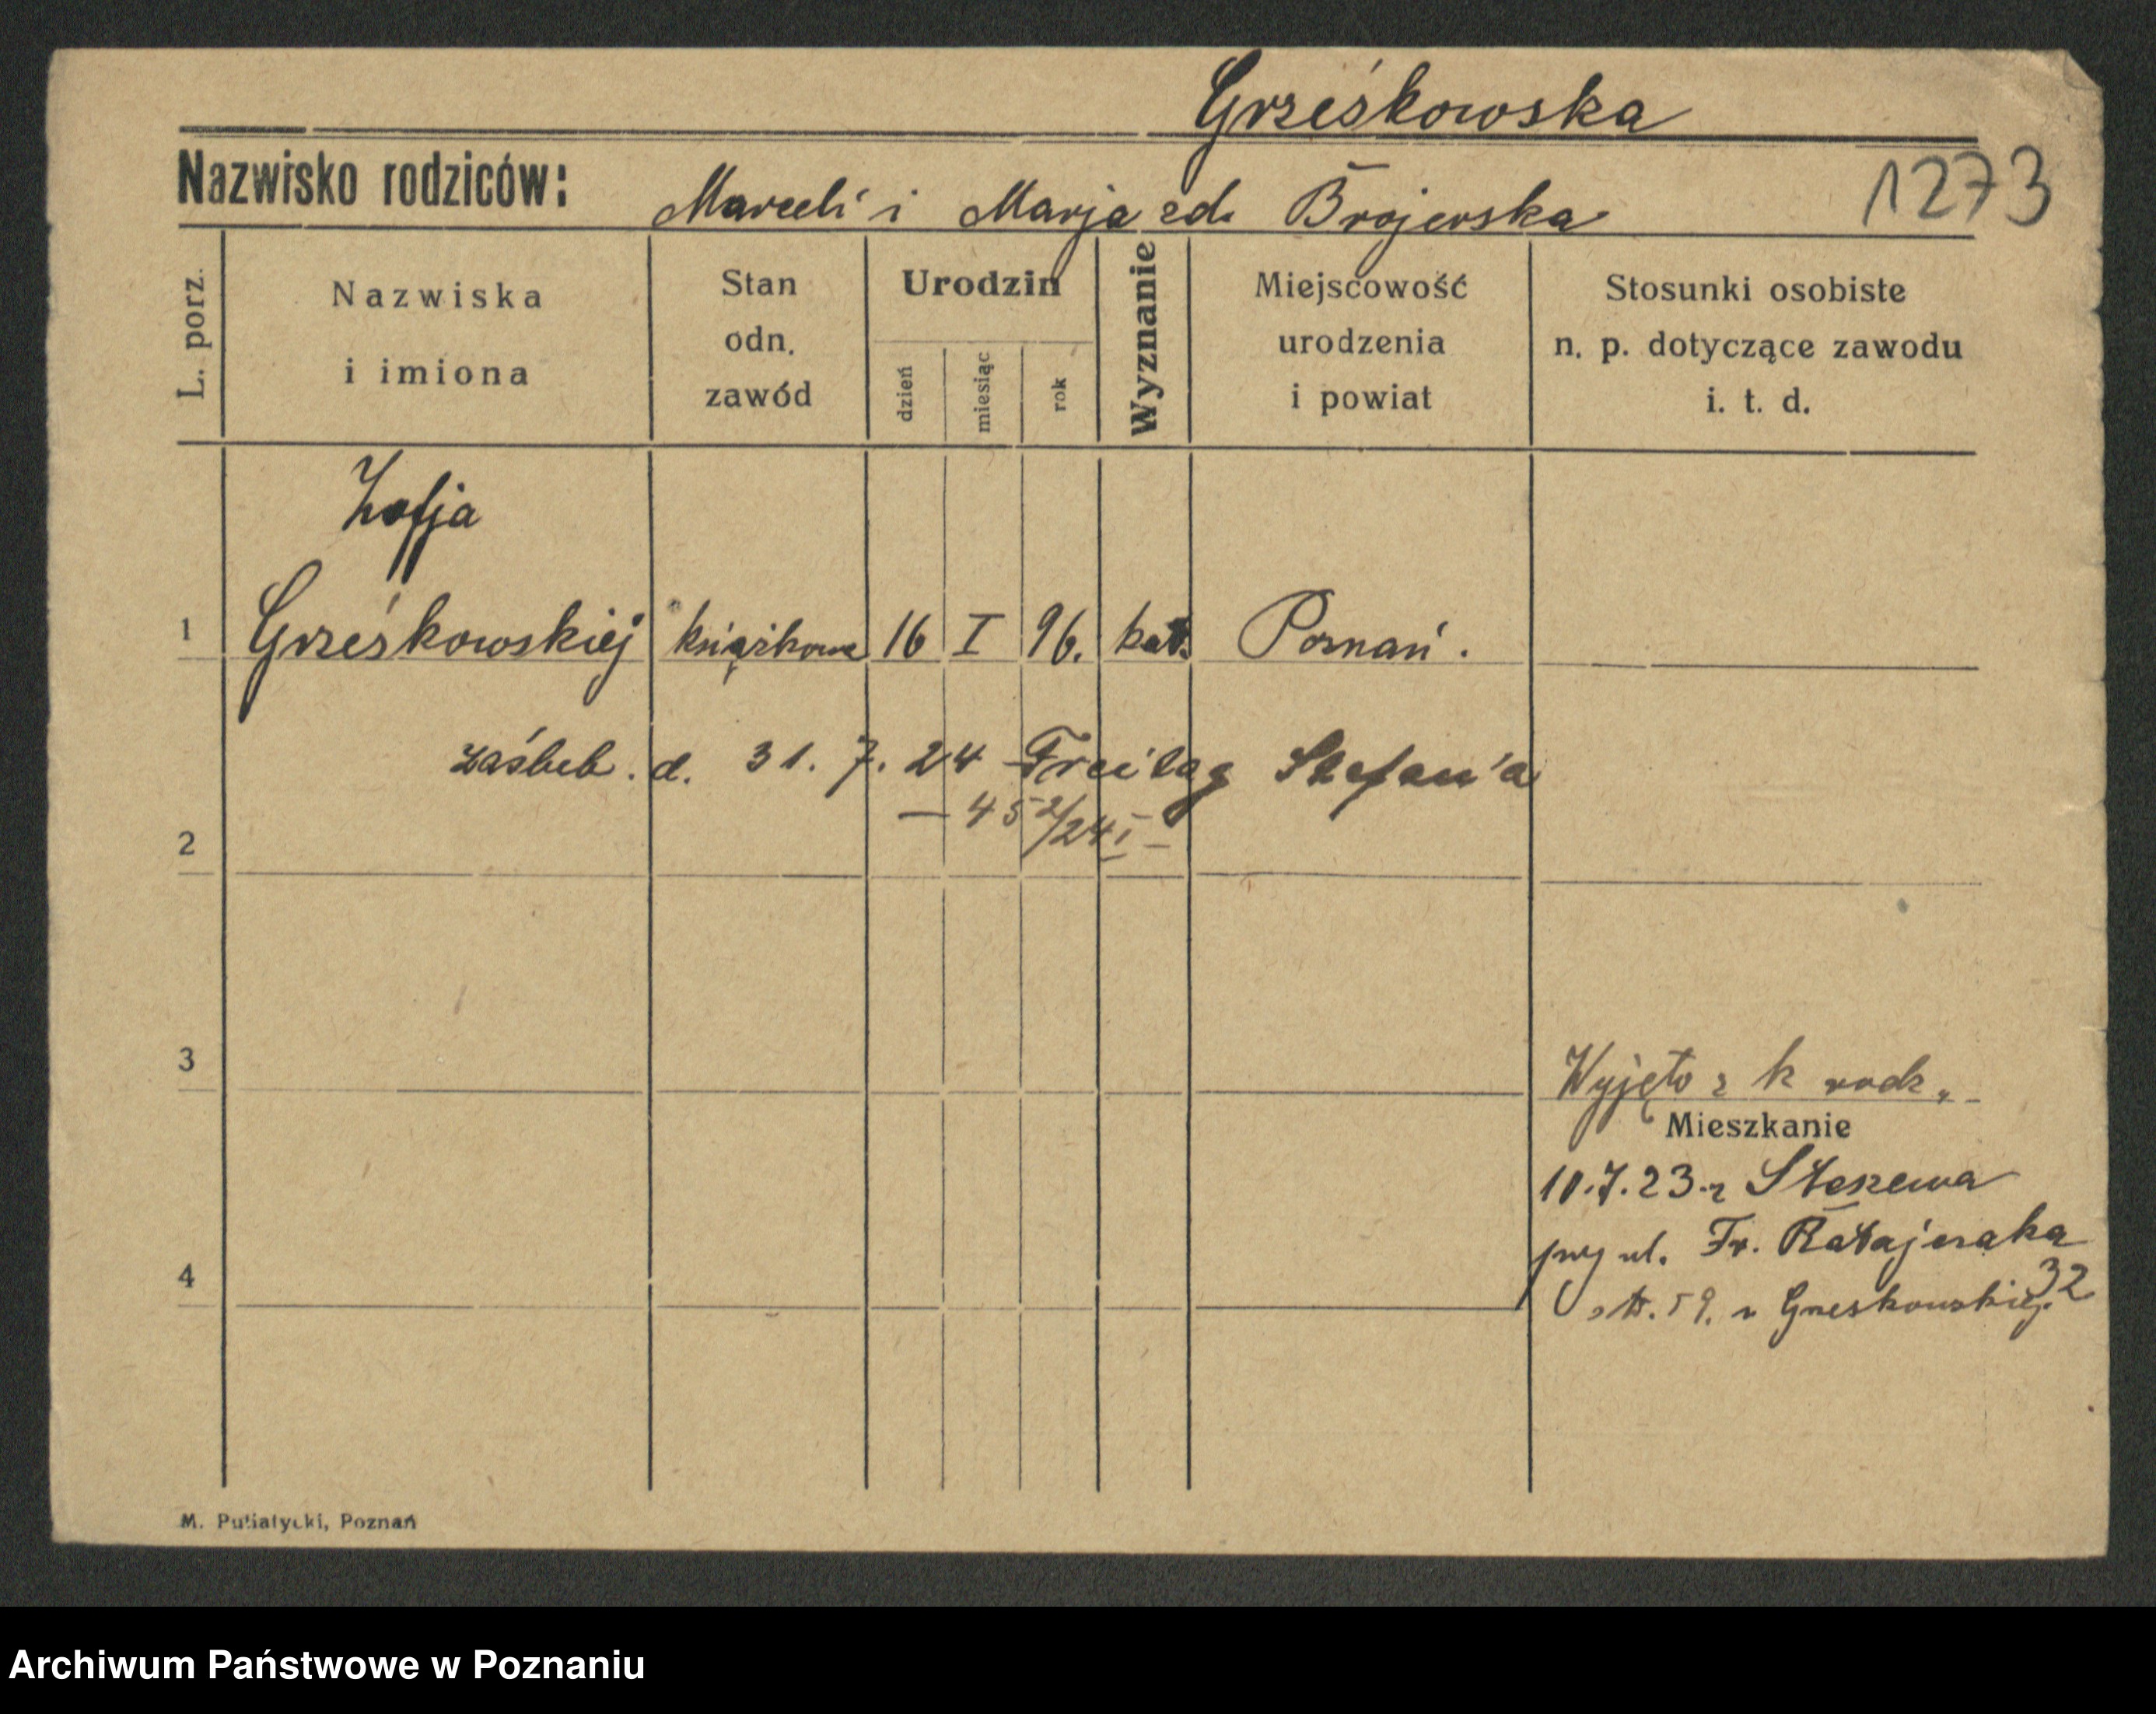 Grześkowska
Nazwisko rodziców: Marceli i Marja zd. Brojerska
1273
L. porz.
Nazwiska
i imiona
Stan
odn.
zawód
Urodzin
dzień
miesiąc
rok
Wyznanie
Miejscowość
urodzenia
i powiat
Stosunki osobiste
n. p. dotyczące zawodu
i. t. d.
Zofja
1 Grześkowskiej książkowa 16 I 96. kat. Poznań.
zaślub. d. 31. 7. 24 Freitag Stefan'a
— 452/24 I —
2
3
Wyjęto z k rodz.
Mieszkanie
10.7.23 z Stęszewa
4
ul. Fr. Ratajczaka
32
Grześkowskiej
M. Putiatycki, Poznań
Archiwum Państwowe w Poznaniu